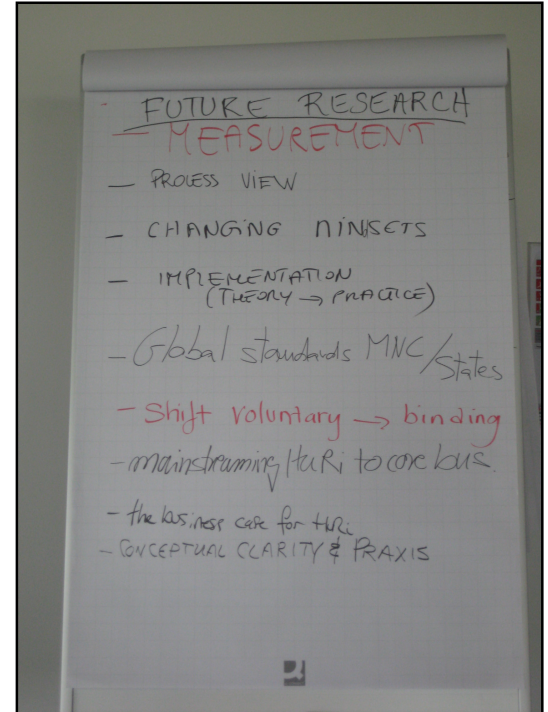 - FUTURE RESEARCH
- MEASUREMENT
- PROCESS VIEW
- CHANGING MINSETS
- IMPLEMENTATION
(THEORY → PRACTICE)
- Global standards MNC/States
- Shift voluntary → binding
- mainstreaming HuRi to core bus.
- the business case for HuRi
- CONCEPTUAL CLARITY & PRAXIS